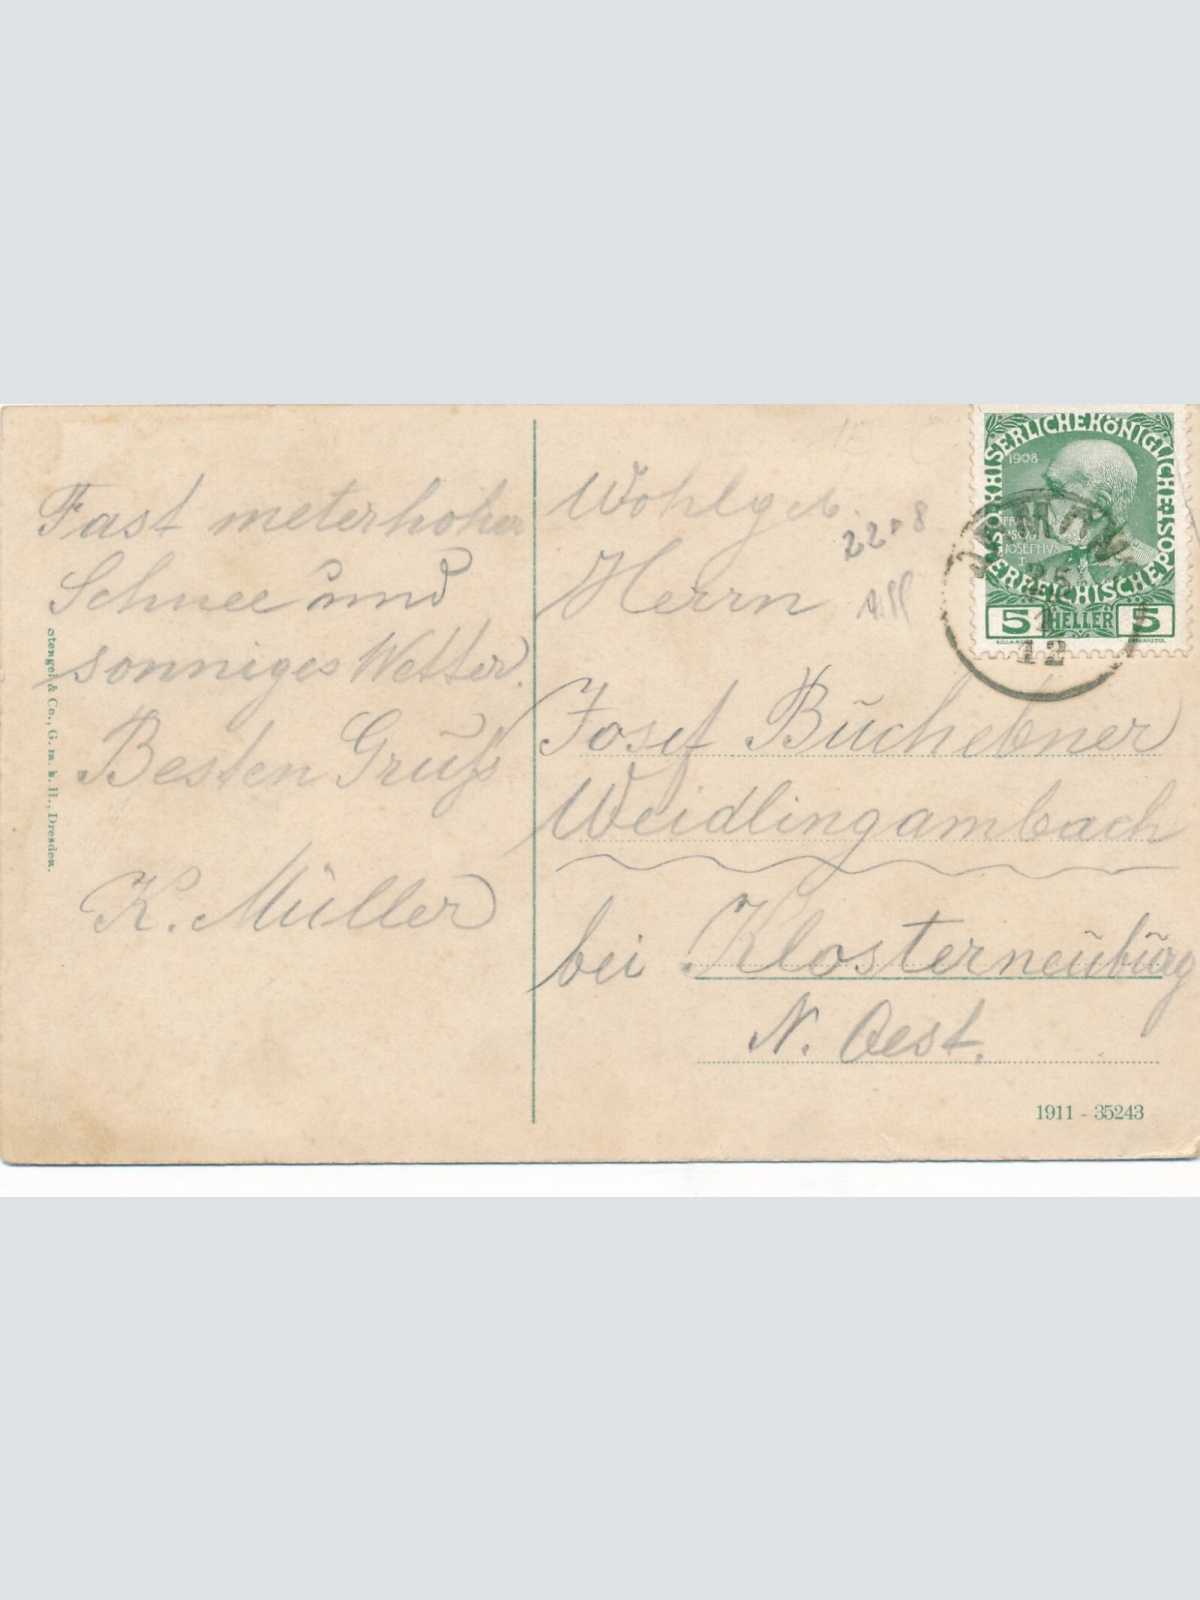 Fast meterhoher
Schnee und
sonniges Wetter.
Besten Gruß
K. Müller
Stengel & Co., G. m. b. H., Dresden.
Wohlgeb.
Herrn
2208
Josef Buchebner
Weidlingambach
bei Klosterneuburg
N. Oest.
1911 - 35243
KAISERLICHE KÖNIGLICHE ÖSTERREICHISCHE POST
1908
JOSEPHVS
5 HELLER 5
12